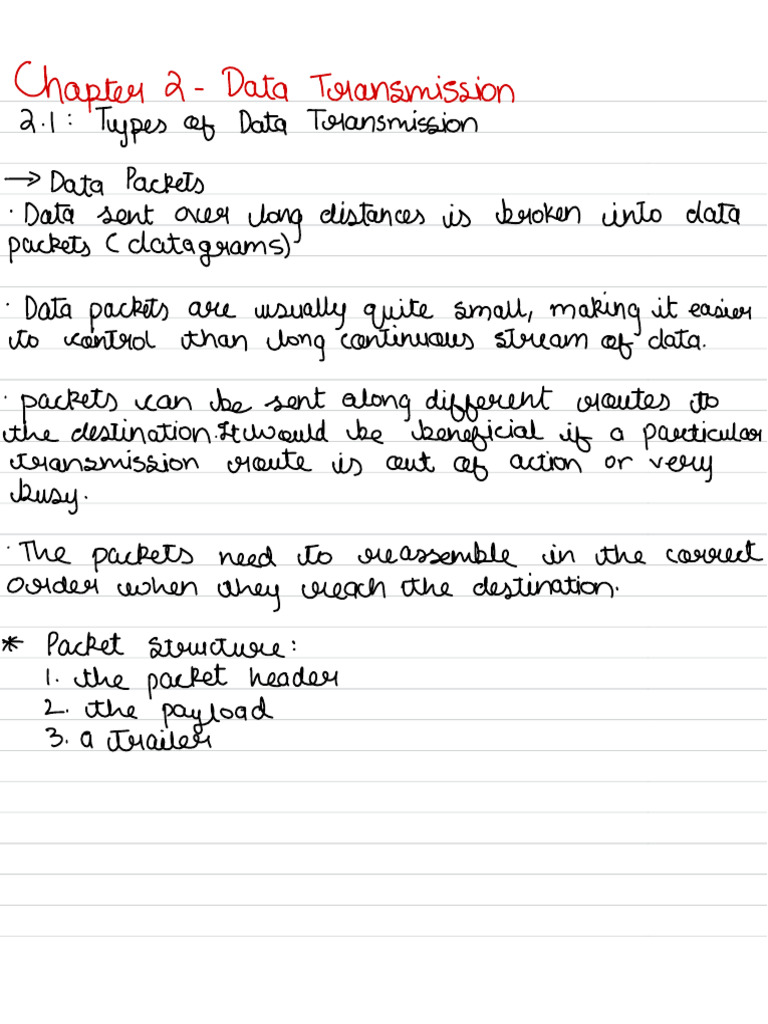 Chapter 2 - Data Transmission
2.1: Types of Data Transmission
→ Data Packets
· Data sent over long distances is broken into data
packets (datagrams)
· Data packets are usually quite small, making it easier
to control than long continuous stream of data.
· packets can be sent along different routes to
the destination. It would be beneficial if a particular
transmission route is out of action or very
busy.
· The packets need to reassemble in the correct
order when they reach the destination.
* Packet structure:
1. the packet header
2. the payload
3. a trailer